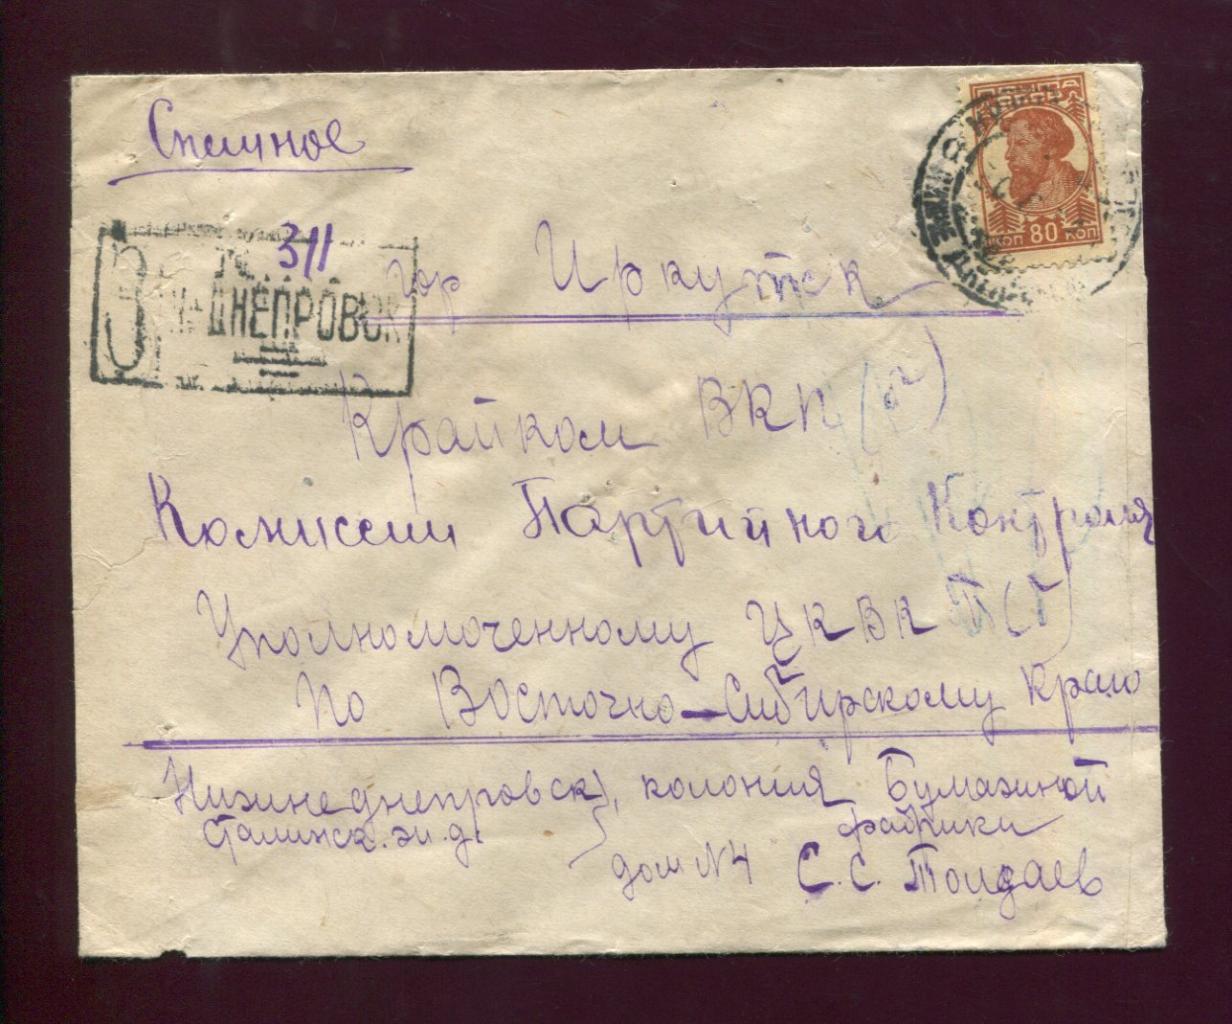 Спешное
ПОЧТА
КОП 80 КОП
З
311
Н-ДНЕПРОВСК
гор Иркутск
Крайком ВКП(б)
Комиссии Партийного Контроля
Уполномоченному ЦК ВКП(б)
по Восточно-Сибирскому краю
Нижнеднепровск, колония Бумажной
Сталинск. ж. д. фабрики
дом №4 С. С.